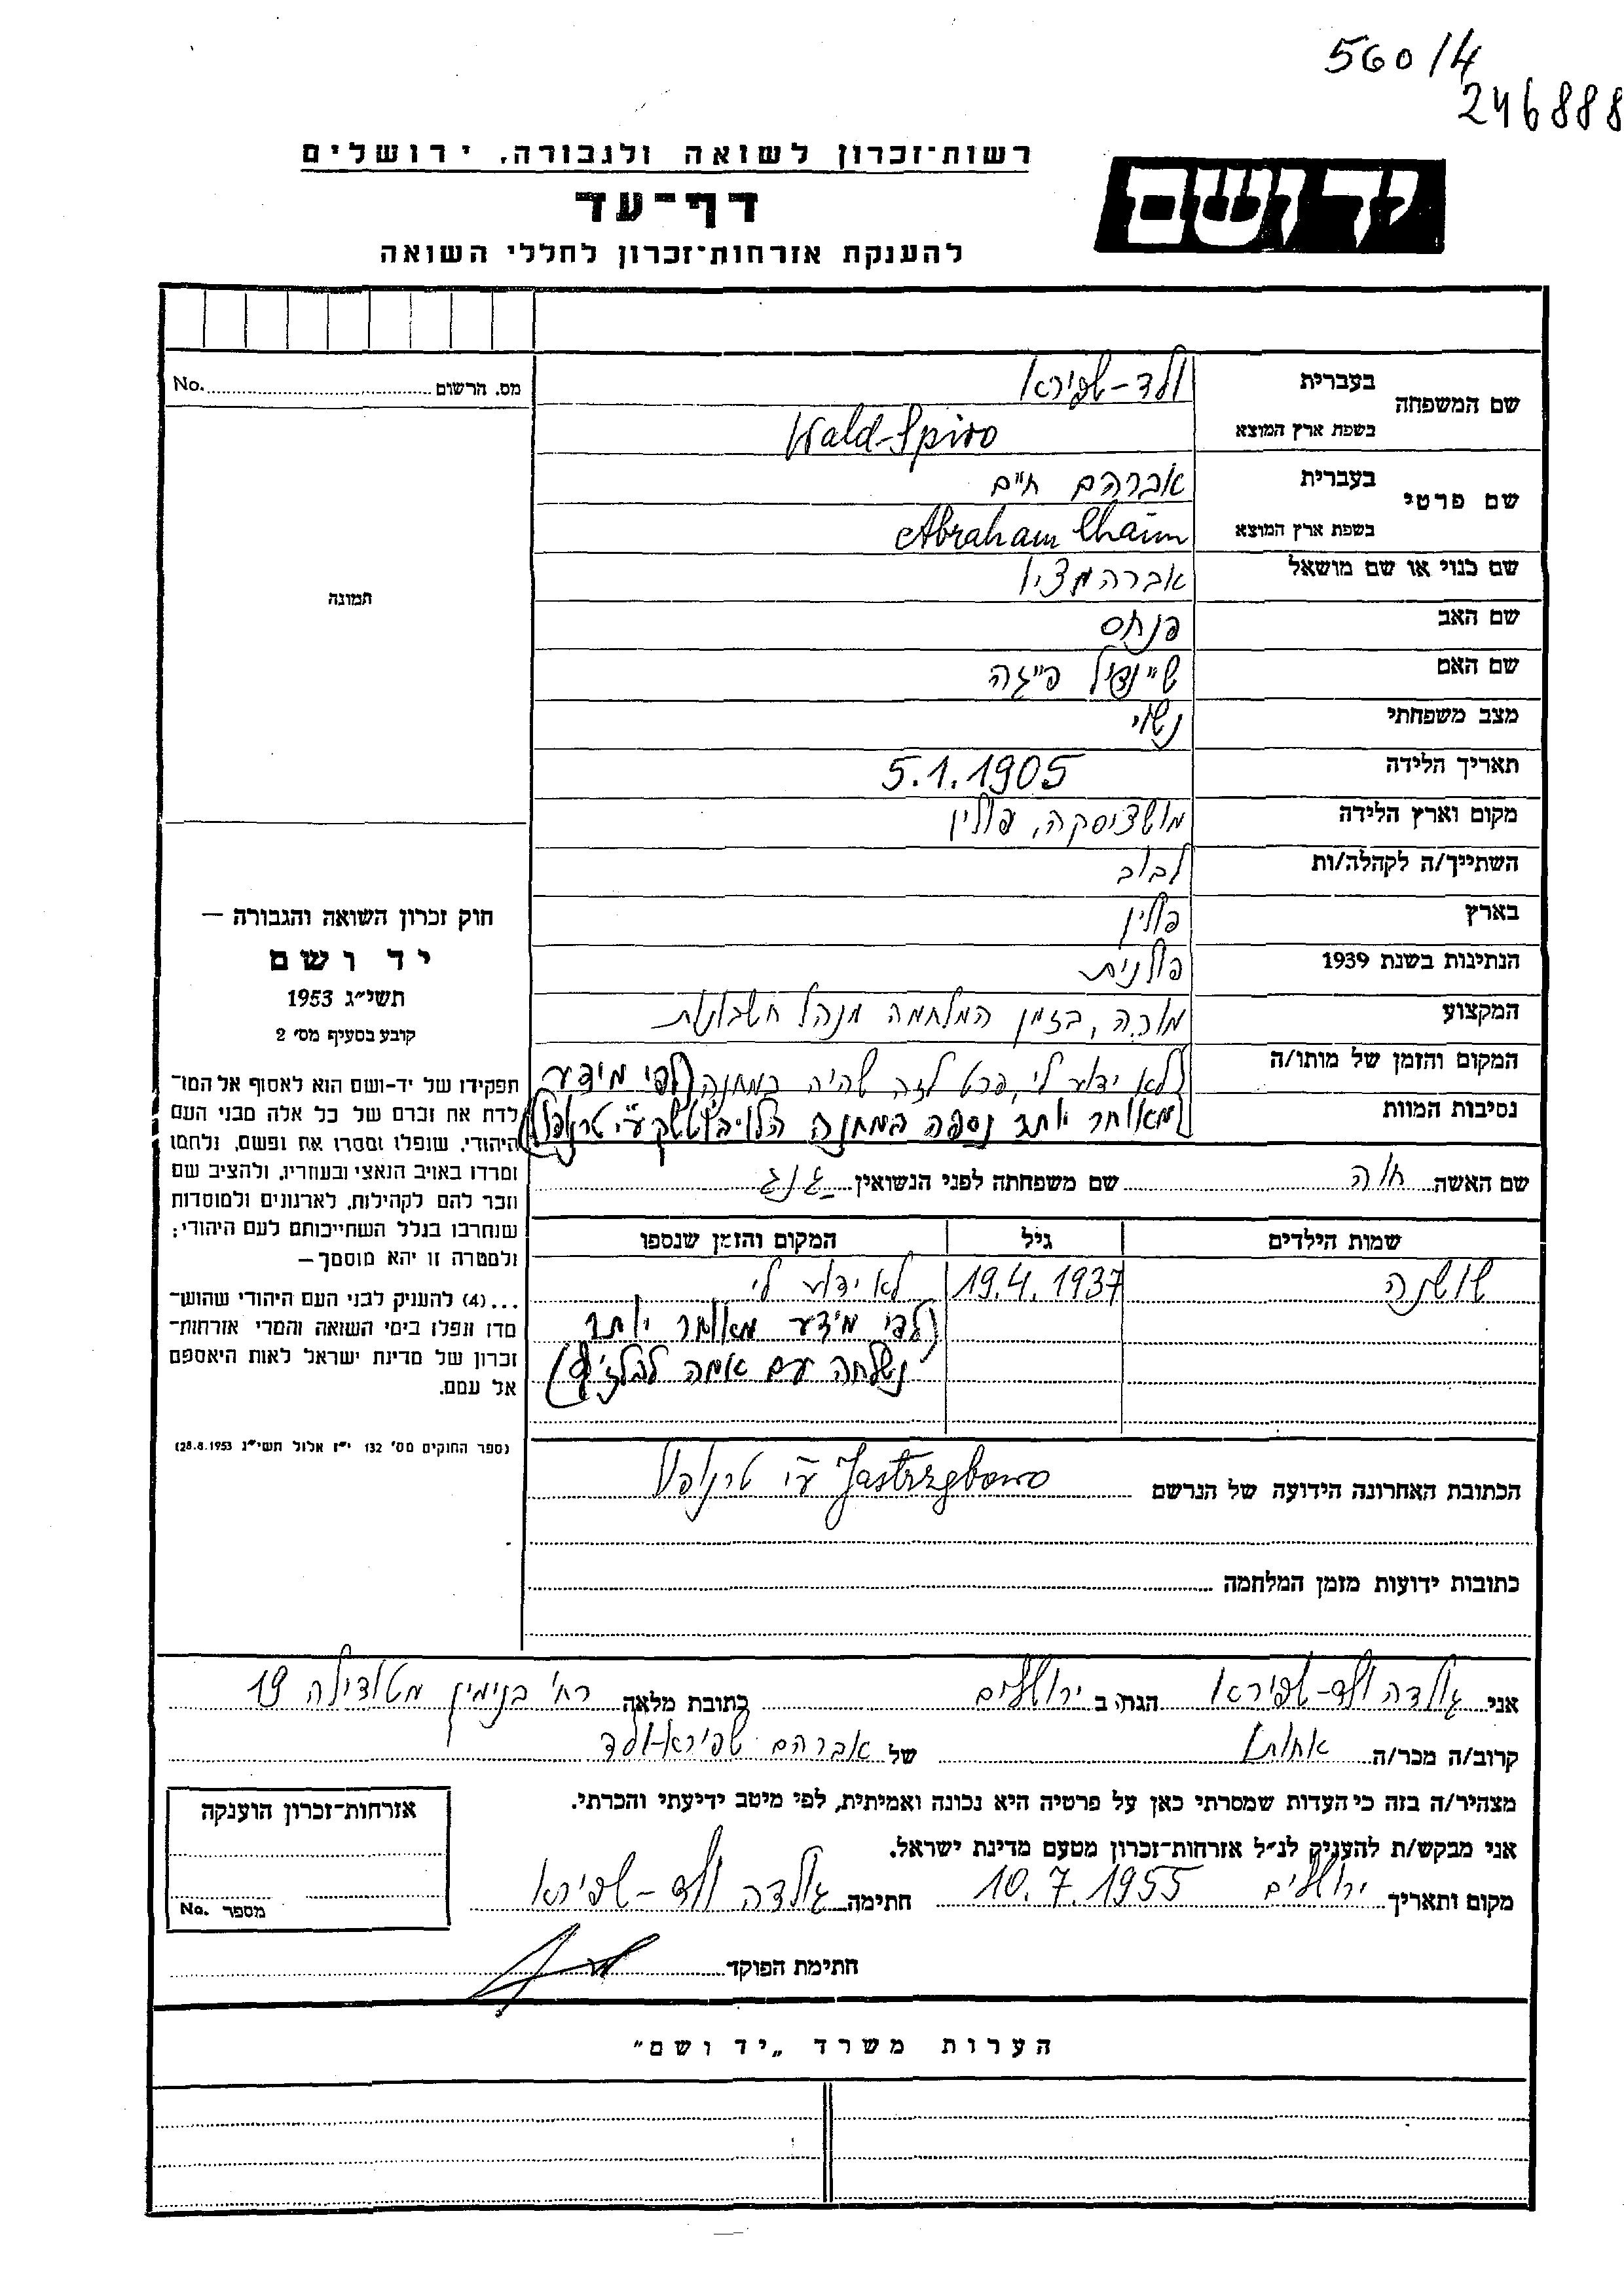 560/4
246888
יד ושם
רשות־זכרון לשואה ולגבורה, ירושלים
דף־עד
להענקת אזרחות־זכרון לחללי השואה
מס. הרשום No.
תמונה
שם המשפחה בעברית ולד-שפירא
בשפת ארץ המוצא Wald-Spiro
שם פרטי בעברית אברהם חיים
בשפת ארץ המוצא Abraham Chaim
שם כנוי או שם מושאל
שם האב פנחס
שם האם שיינדיל פייגה
מצב משפחתי נשוי
תאריך הלידה 5.1.1905
מקום וארץ הלידה מושציסקה, פולין
השתייך/ה לקהלה/ות לבוב
בארץ פולין
הנתינות בשנת 1939 פולנית
המקצוע מורה, בזמן המלחמה מנהל חשבונות
המקום והזמן של מותו/ה לא ידוע לי, פרט לזה שהיה במחנה (לפי מידע
נסיבות המוות מאוחר יותר נספה במחנה ע"י טרנופול)
שם האשה חוה שם משפחתה לפני הנשואין גנג
שמות הילדים גיל המקום והזמן שנספו
שושנה 19.4.1937 לא ידוע לי
(לפי מידע מאוחר יותר
נשלחה עם אמה לבלז'ץ)
הכתובת האחרונה הידועה של הנרשם Jastrzębowo ע"י טרנופול
כתובות ידועות מזמן המלחמה
חוק זכרון השואה והגבורה —
יד ושם
תשי"ג 1953
קובע בסעיף מס' 2
תפקידו של יד-ושם הוא לאסוף אל המו־
לדת את זכרם של כל אלה מבני העם
היהודי, שנפלו ומסרו את נפשם, נלחמו
ומרדו באויב הנאצי ובעוזריו, ולהציב שם
וזכר להם לקהילות, לארגונים ולמוסדות
שנחרבו בגלל השתייכותם לעם היהודי;
ולמטרה זו יהא מוסמך—
...(4) להעניק לבני העם היהודי שהוש־
מדו ונפלו בימי השואה והמרי אזרחות־
זכרון של מדינת ישראל לאות היאספם
אל עמם.
(ספר החוקים מס' 132 י"ז אלול תשי"ג 28.8.1953)
אני גולדה ולד-שפירא הגר/ה ב ירושלים כתובת מלאה רח' בנימין מטודילה 19
קרוב/ה מכר/ה אחותו של אברהם שפירא-ולד
מצהיר/ה בזה כי העדות שמסרתי כאן על פרטיה היא נכונה ואמיתית, לפי מיטב ידיעתי והכרתי.
אני מבקש/ת להעניק לנ"ל אזרחות־זכרון מטעם מדינת ישראל.
מקום ותאריך ירושלים 10.7.1955 חתימה גולדה ולד-שפירא
חתימת הפוקד
אזרחות־זכרון הוענקה
מספר No.
הערות משרד „יד ושם"